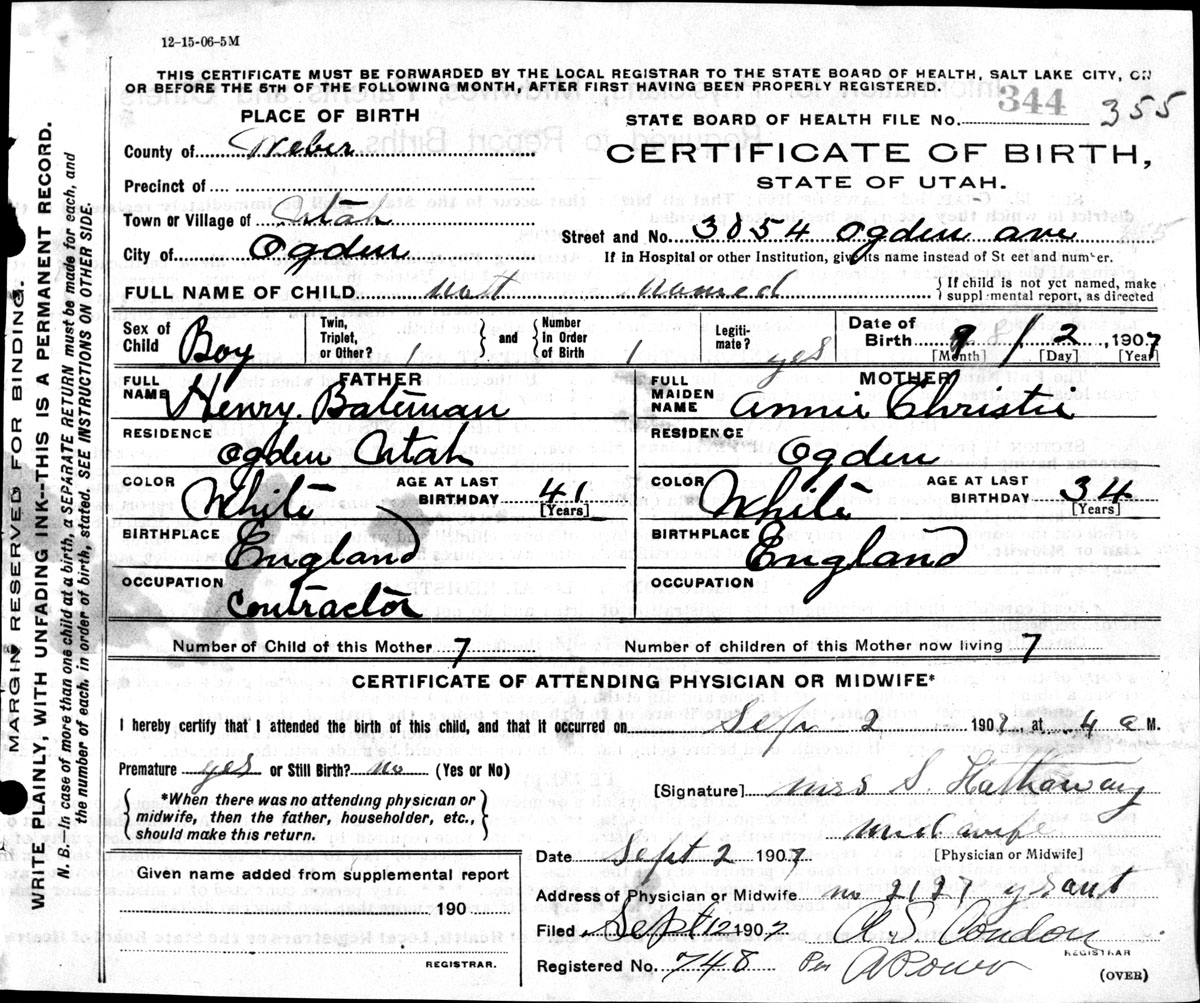 12-15-06-5M
THIS CERTIFICATE MUST BE FORWARDED BY THE LOCAL REGISTRAR TO THE STATE BOARD OF HEALTH, SALT LAKE CITY, ON
OR BEFORE THE 5TH OF THE FOLLOWING MONTH, AFTER FIRST HAVING BEEN PROPERLY REGISTERED.
PLACE OF BIRTH
STATE BOARD OF HEALTH FILE No. 344 355
County of Weber
CERTIFICATE OF BIRTH,
STATE OF UTAH.
Precinct of
Town or Village of Utah
City of Ogden
Street and No. 3054 Ogden ave
If in Hospital or other Institution, give its name instead of St eet and number.
FULL NAME OF CHILD Nott Named
If child is not yet named, make
suppl mental report, as directed
Sex of Child Boy
Twin, Triplet, or Other? 1
and
Number in Order of Birth 1
Legiti-mate? yes
Date of Birth 9 / 2, 1907
[Month] [Day] [Year]
FATHER
FULL NAME Henry. Bateman
RESIDENCE
Ogden Utah
COLOR White
AGE AT LAST BIRTHDAY 41
[Years]
BIRTHPLACE England
OCCUPATION
Contractor
MOTHER
FULL MAIDEN NAME Annie Christie
RESIDENCE
Ogden
COLOR White
AGE AT LAST BIRTHDAY 34
[Years]
BIRTHPLACE England
OCCUPATION
Number of Child of this Mother 7
Number of children of this Mother now living 7
CERTIFICATE OF ATTENDING PHYSICIAN OR MIDWIFE*
I hereby certify that I attended the birth of this child, and that it occurred on Sep 2 1907 at 4 a M.
Premature yes or Still Birth? no (Yes or No)
*When there was no attending physician or
midwife, then the father, householder, etc.,
should make this return.
[Signature] Mrs S. Hathaway
Midwife
[Physician or Midwife]
Date Sept 2 1907
Given name added from supplemental report
190
REGISTRAR.
Address of Physician or Midwife no 2121 grant
Filed Sept 12 1907 R. S. Condon
REGISTRAR
Registered No. 748 Per
(OVER)
MARGIN RESERVED FOR BINDING.
WRITE PLAINLY, WITH UNFADING INK--THIS IS A PERMANENT RECORD.
N. B.--In case of more than one child at a birth, a SEPARATE RETURN must be made for each, and
the number of each, in order of birth, stated. SEE INSTRUCTIONS ON OTHER SIDE.